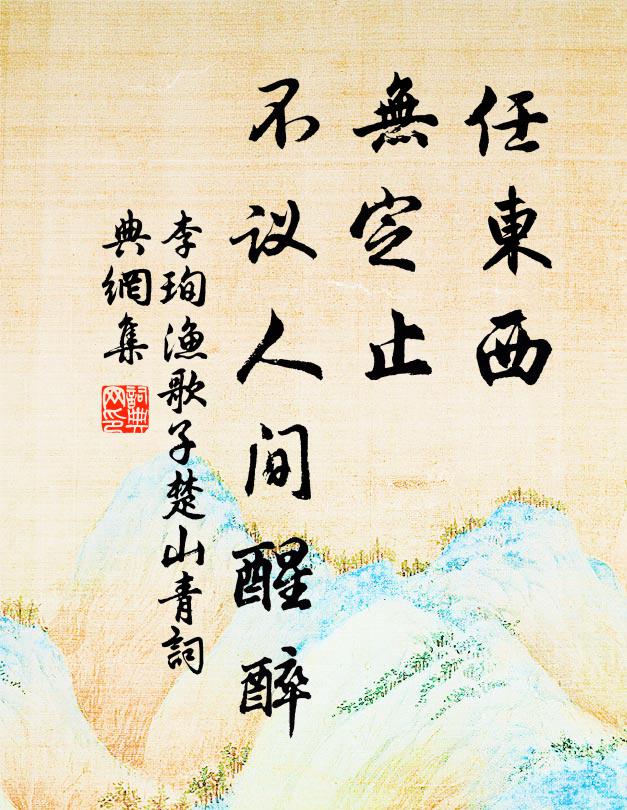 任東西
無定止
不议人间醒醉
李珣渔歌子楚山青詞
典網集
詞典网印